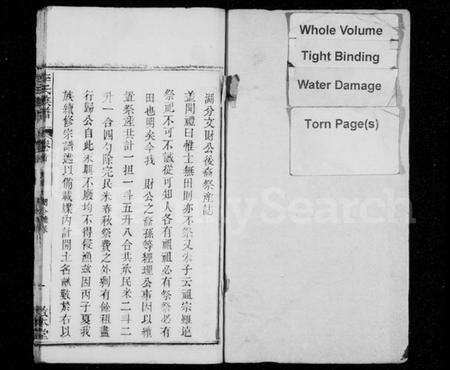 湖分文財公後裔祭產誌
蓋聞禮曰惟士無田則亦不祭又朱子云祖宗雖遠
祭祀不可不誠從可知人各有祖祖必有祭祭必有
田也明矣今我 財公之裔孫等經理公事因以積
置祭產共計一担一斗五升八合共承民米二斗二
升一合四勺除完民米春秋祭費之外剩有餘租盡
行歸公自此永興不廢均不得侵漁茲因丙子夏我
族續修宗譜迆以備載牒內計開土名畝數於右以
氏
敦本堂
Whole Volume
Tight Binding
Water Damage
Torn Page(s)
MySearch